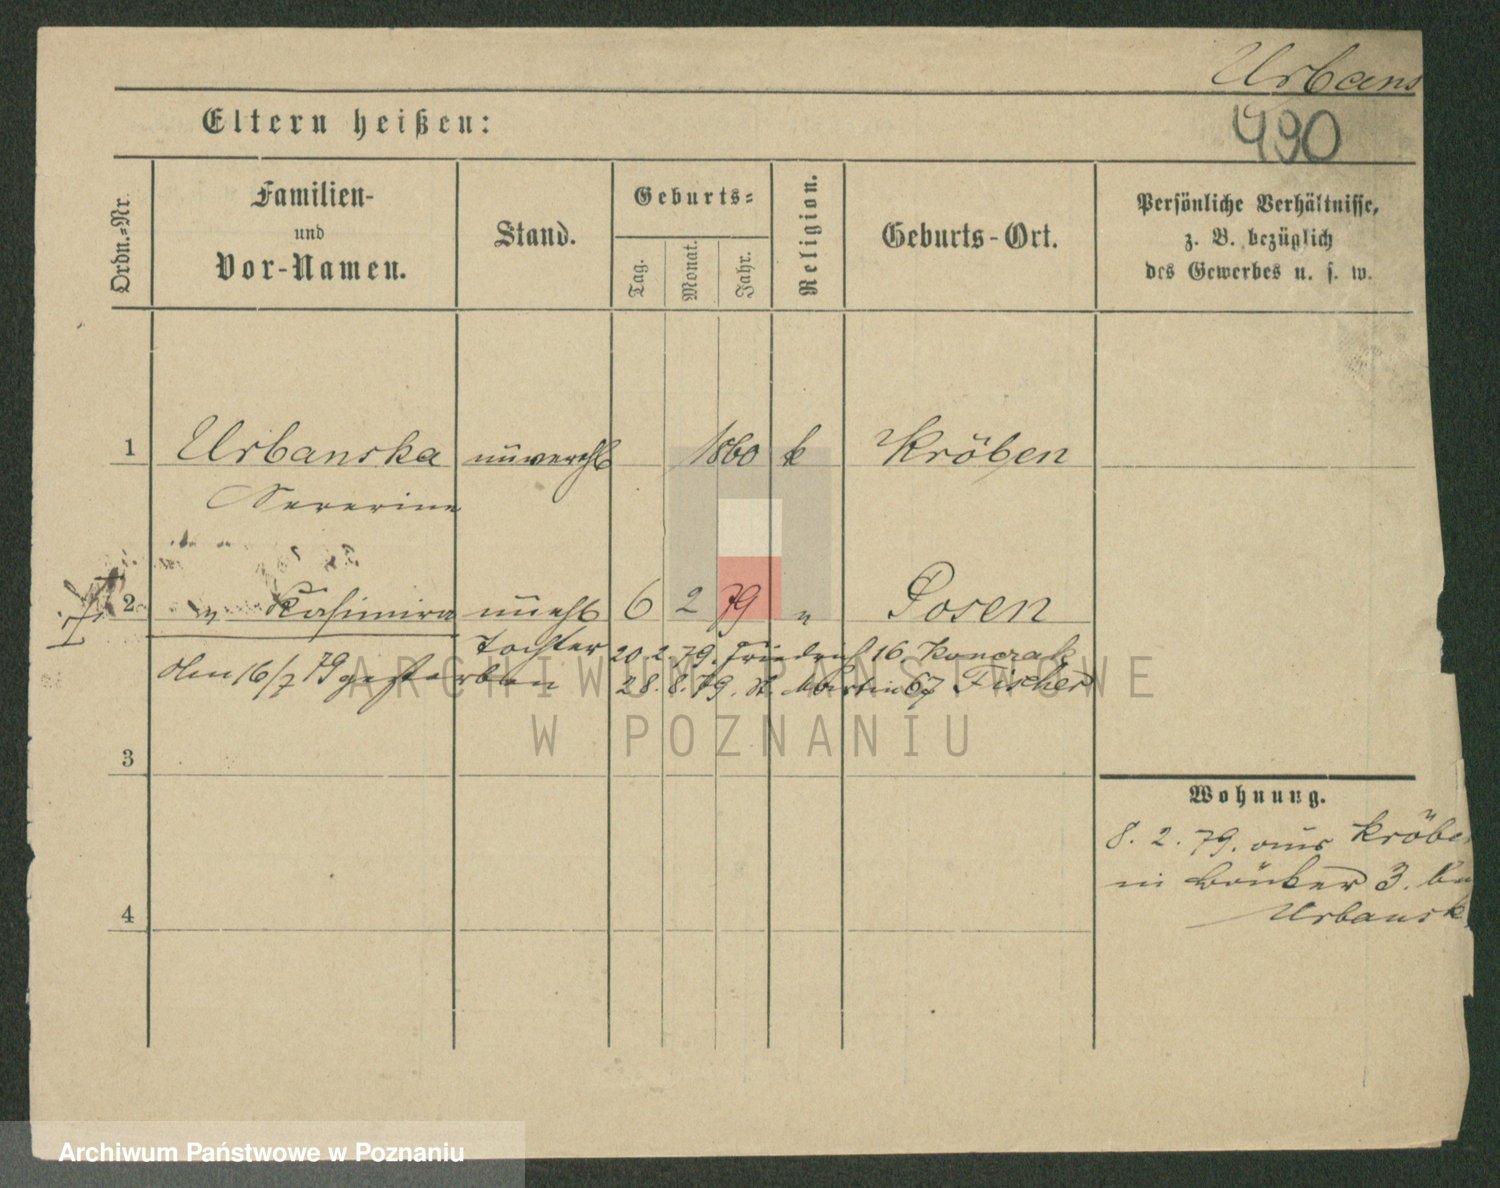 Urbans
490
Eltern heißen:
Ordn.-Nr.
Familien-
und
Vor-Namen.
Stand.
Geburts-
Tag.
Monat.
Jahr.
Religion.
Geburts-Ort.
Persönliche Verhältnisse,
z. B. bezüglich
des Gewerbes u. s. w.
1 Urbanska unverehl 1860 k Kröben
Severine
2 " Kasimira unehl 6 2 79 " Posen
Tochter 20.2.79. Friedrich 16 Konczak
Am 16/7 79 gestorben 28.8.79. St. Martin 67 Fischer
ARCHIWUM PAŃSTWOWE
W POZNANIU
3
Wohnung.
8. 2. 79. aus Kröbe
3.
Urbansk
4
Archiwum Państwowe w Poznaniu